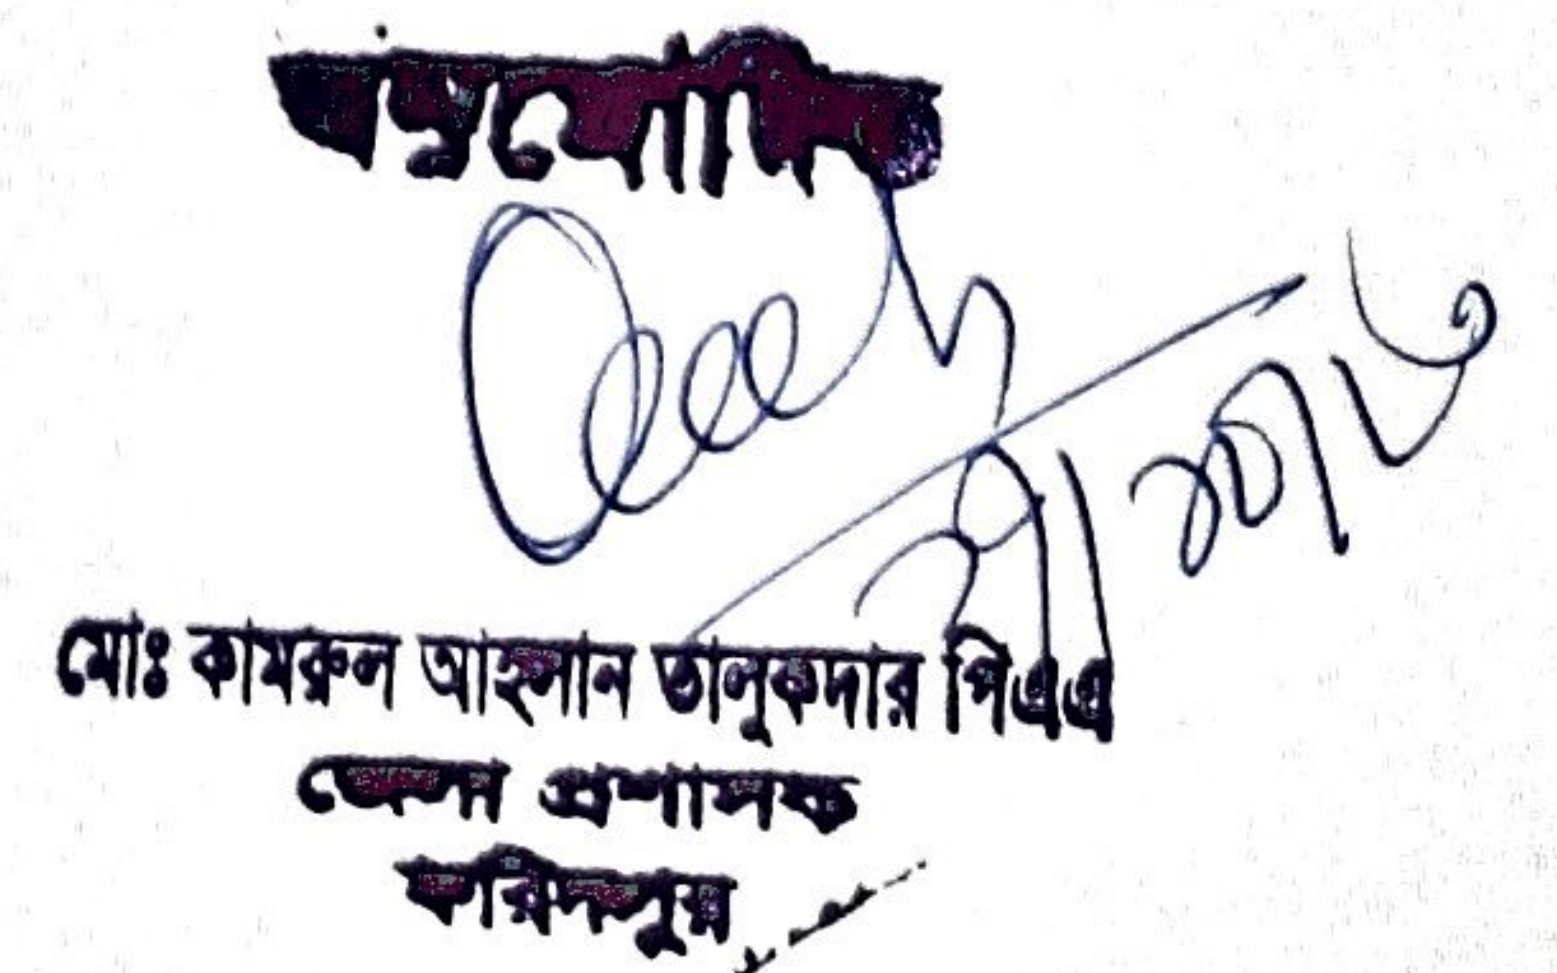 মোঃ কামরুল আহসান তালুকদার পিএএ
জেলা প্রশাসক
ফরিদপুর